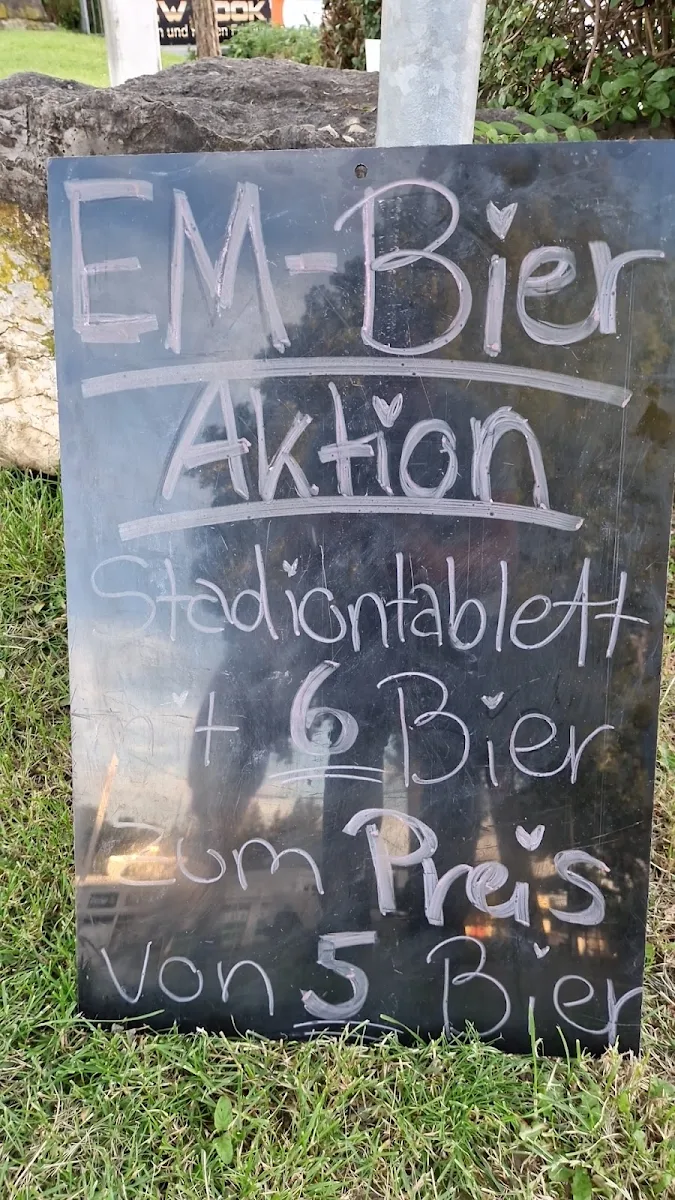 EM-Bier
Aktion
Stadiontablett
mit 6 Bier
zum Preis
von 5 Bier